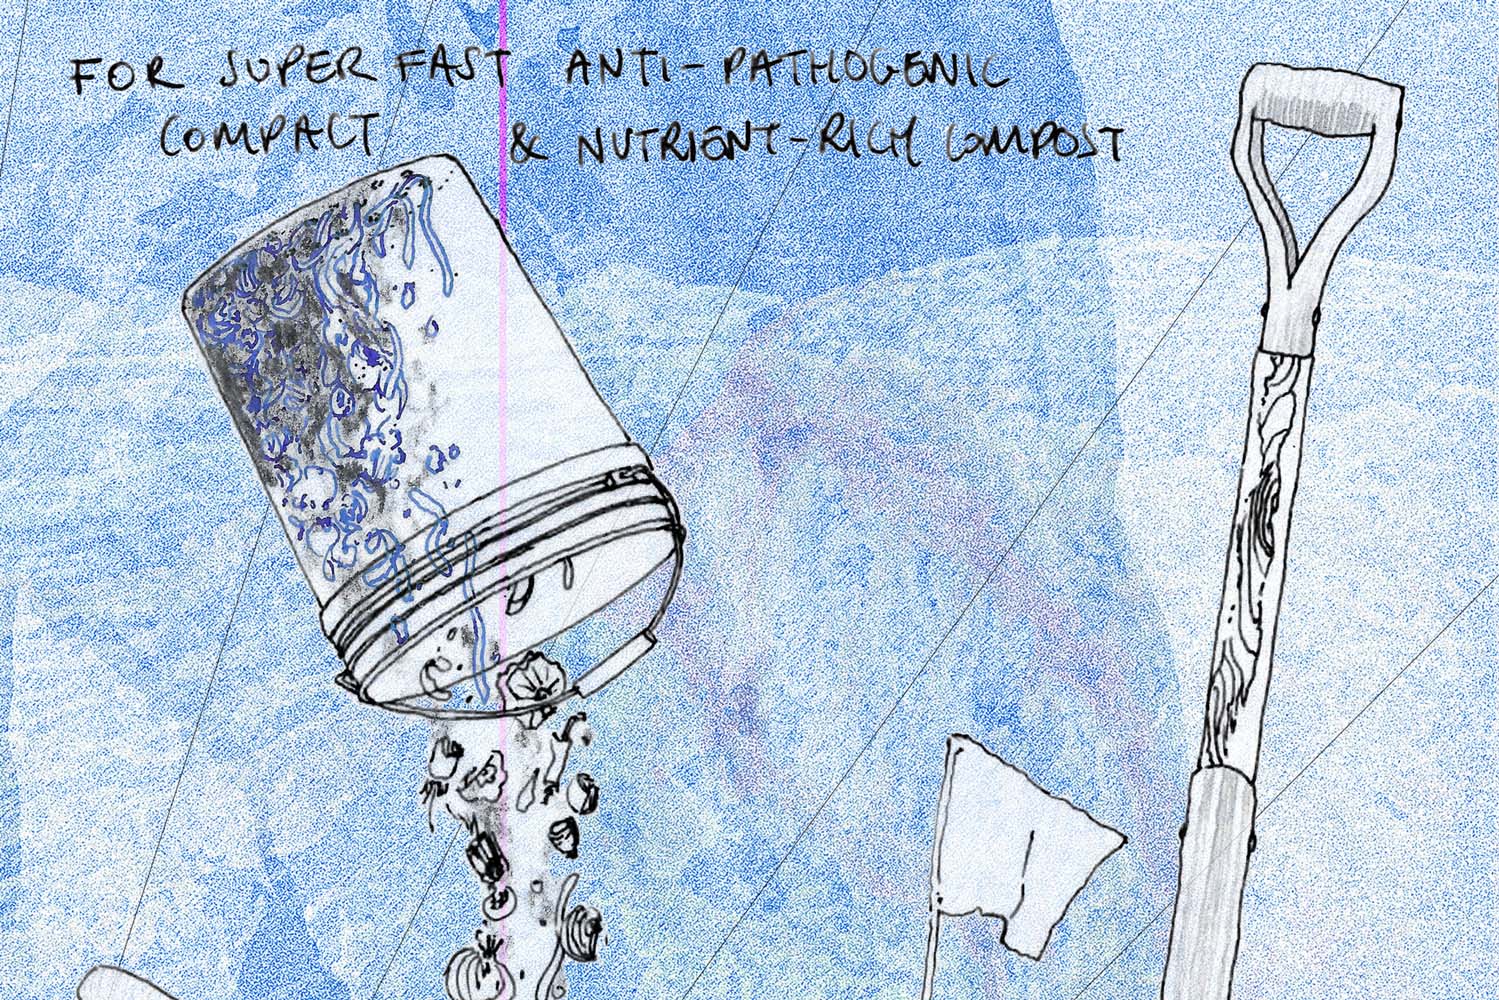 FOR SUPER FAST ANTI-PATHOGENIC
COMPACT & NUTRIENT-RICH COMPOST